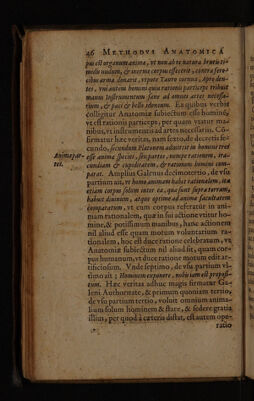 26 METHODVS ANATOMICA
pus est organum animæ, vt non ab re natura brutis ti-
midis nudum, & inerme corpus efecerit, contra fero-
cibus arma donarit, vtpote Tauro cornua, Apro den-
tes, vni autem homini quia rationis particeps tribuit
manus Instrumentum sane ad omnes artes necessa-
rium, & paci & bello idoneum. Ex quibus verbis
colligitur Anatomiæ subiectum esse hominẽ,
vt est rationis particeps, per quam vtatur ma-
nibus, vt instrumentis ad artes necessariis. Cõ-
firmatur hæc veritas, nam sexto, de decretis se-
cundo, secundum Platonem admittit in homine tres
Animæ par-
tes.
esse animæ species, siue partes, nempe rationem, ira-
cundiam & cupiditatem, & rationem homini com-
parat. Amplius Galenus decimotertio, de vsu
partium ait, vt homo animam habet rationalem, ita
etiam corpus solum inter ea, quæ sunt supra terram,
habuit diuinum, atque optime ad animæ facultatem
comparatum, vt cum corpus referatur in ani-
mam rationalem, quæ in sui actione vtitur ho-
mine, & potissimum manibus, hanc actionem
nil aliud esse quam motum voluntarium ra-
tionalem, hoc est duce ratione celebratum, vt
Anatomiæ subiectum nil aliud sit, quam cor-
pus humanum, vt duce ratione motum edit ar-
tificiosum. Vnde septimo, de vsu partium vl-
timo ait; Hominem exponere, nobis iam est proposi-
tum. Hæc veritas adhuc magis firmatur Ga-
leni Authoritate, & primum quoniam tertio,
de vsu partium tertio, voluit omnium anima-
lium solum hominem & stare, & sedere gratia
illius, per quod à cæteris distat, est autem ope-
ratio